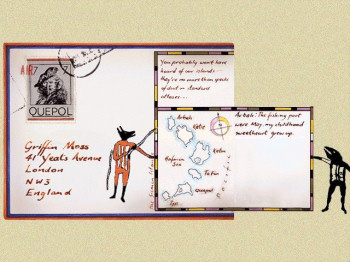 AIR
QUEPOL
Griffin Moss
41 Yeats Avenue
London
NW3
England
You probably won't have
heard of our islands
they're no more than specks
of dust on standard
atlases...
Arbah
Katie
Katin
Ta Fin
Quepol
Arbah: The fishing port
were May, my childhood
sweetheart grew up.